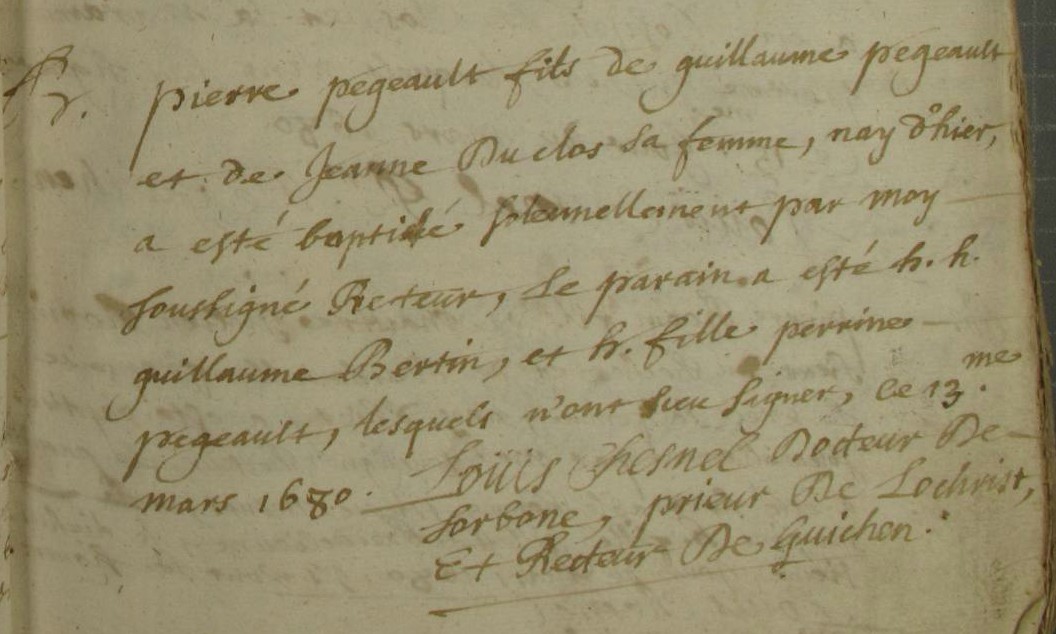 pierre pegeault fils de guillaume pegeault
et de Jeanne Duclos sa femme, nay d'hier,
a esté baptisé solemnellement par moy
soussigné Recteur, le parain a esté h. h.
guillaume Bertin, et h. fille perrine
pegeault, lesquels n'ont sceu signer, ce 13.me
mars 1680. Louis Chesnel Docteur De
Sorbone, prieur De Lochrist,
Et Recteur De Guichen.